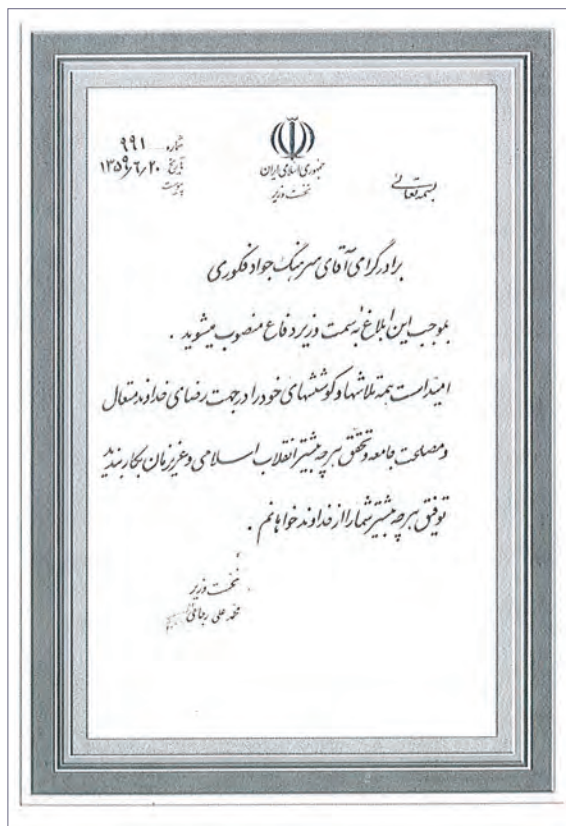 شماره ۹۹۱
تاریخ ۱۳۵۹/۶/۲۰
پیوست
جمهوری اسلامی ایران
نخست وزیر
بسمه تعالی
برادر گرامی آقای سرهنگ جواد فکوری
بموجب این ابلاغ به سمت وزیر دفاع منصوب میشوید .
امید است همه تلاشها و کوششهای خود را در جهت رضای خداوند متعال
و مصلحت جامعه و تحقق هر چه بیشتر انقلاب اسلامی و عزیزمان بکار بندید
توفیق هر چه بیشتر شما را از خداوند خواهانم .
نخست وزیر
محمد علی رجائی